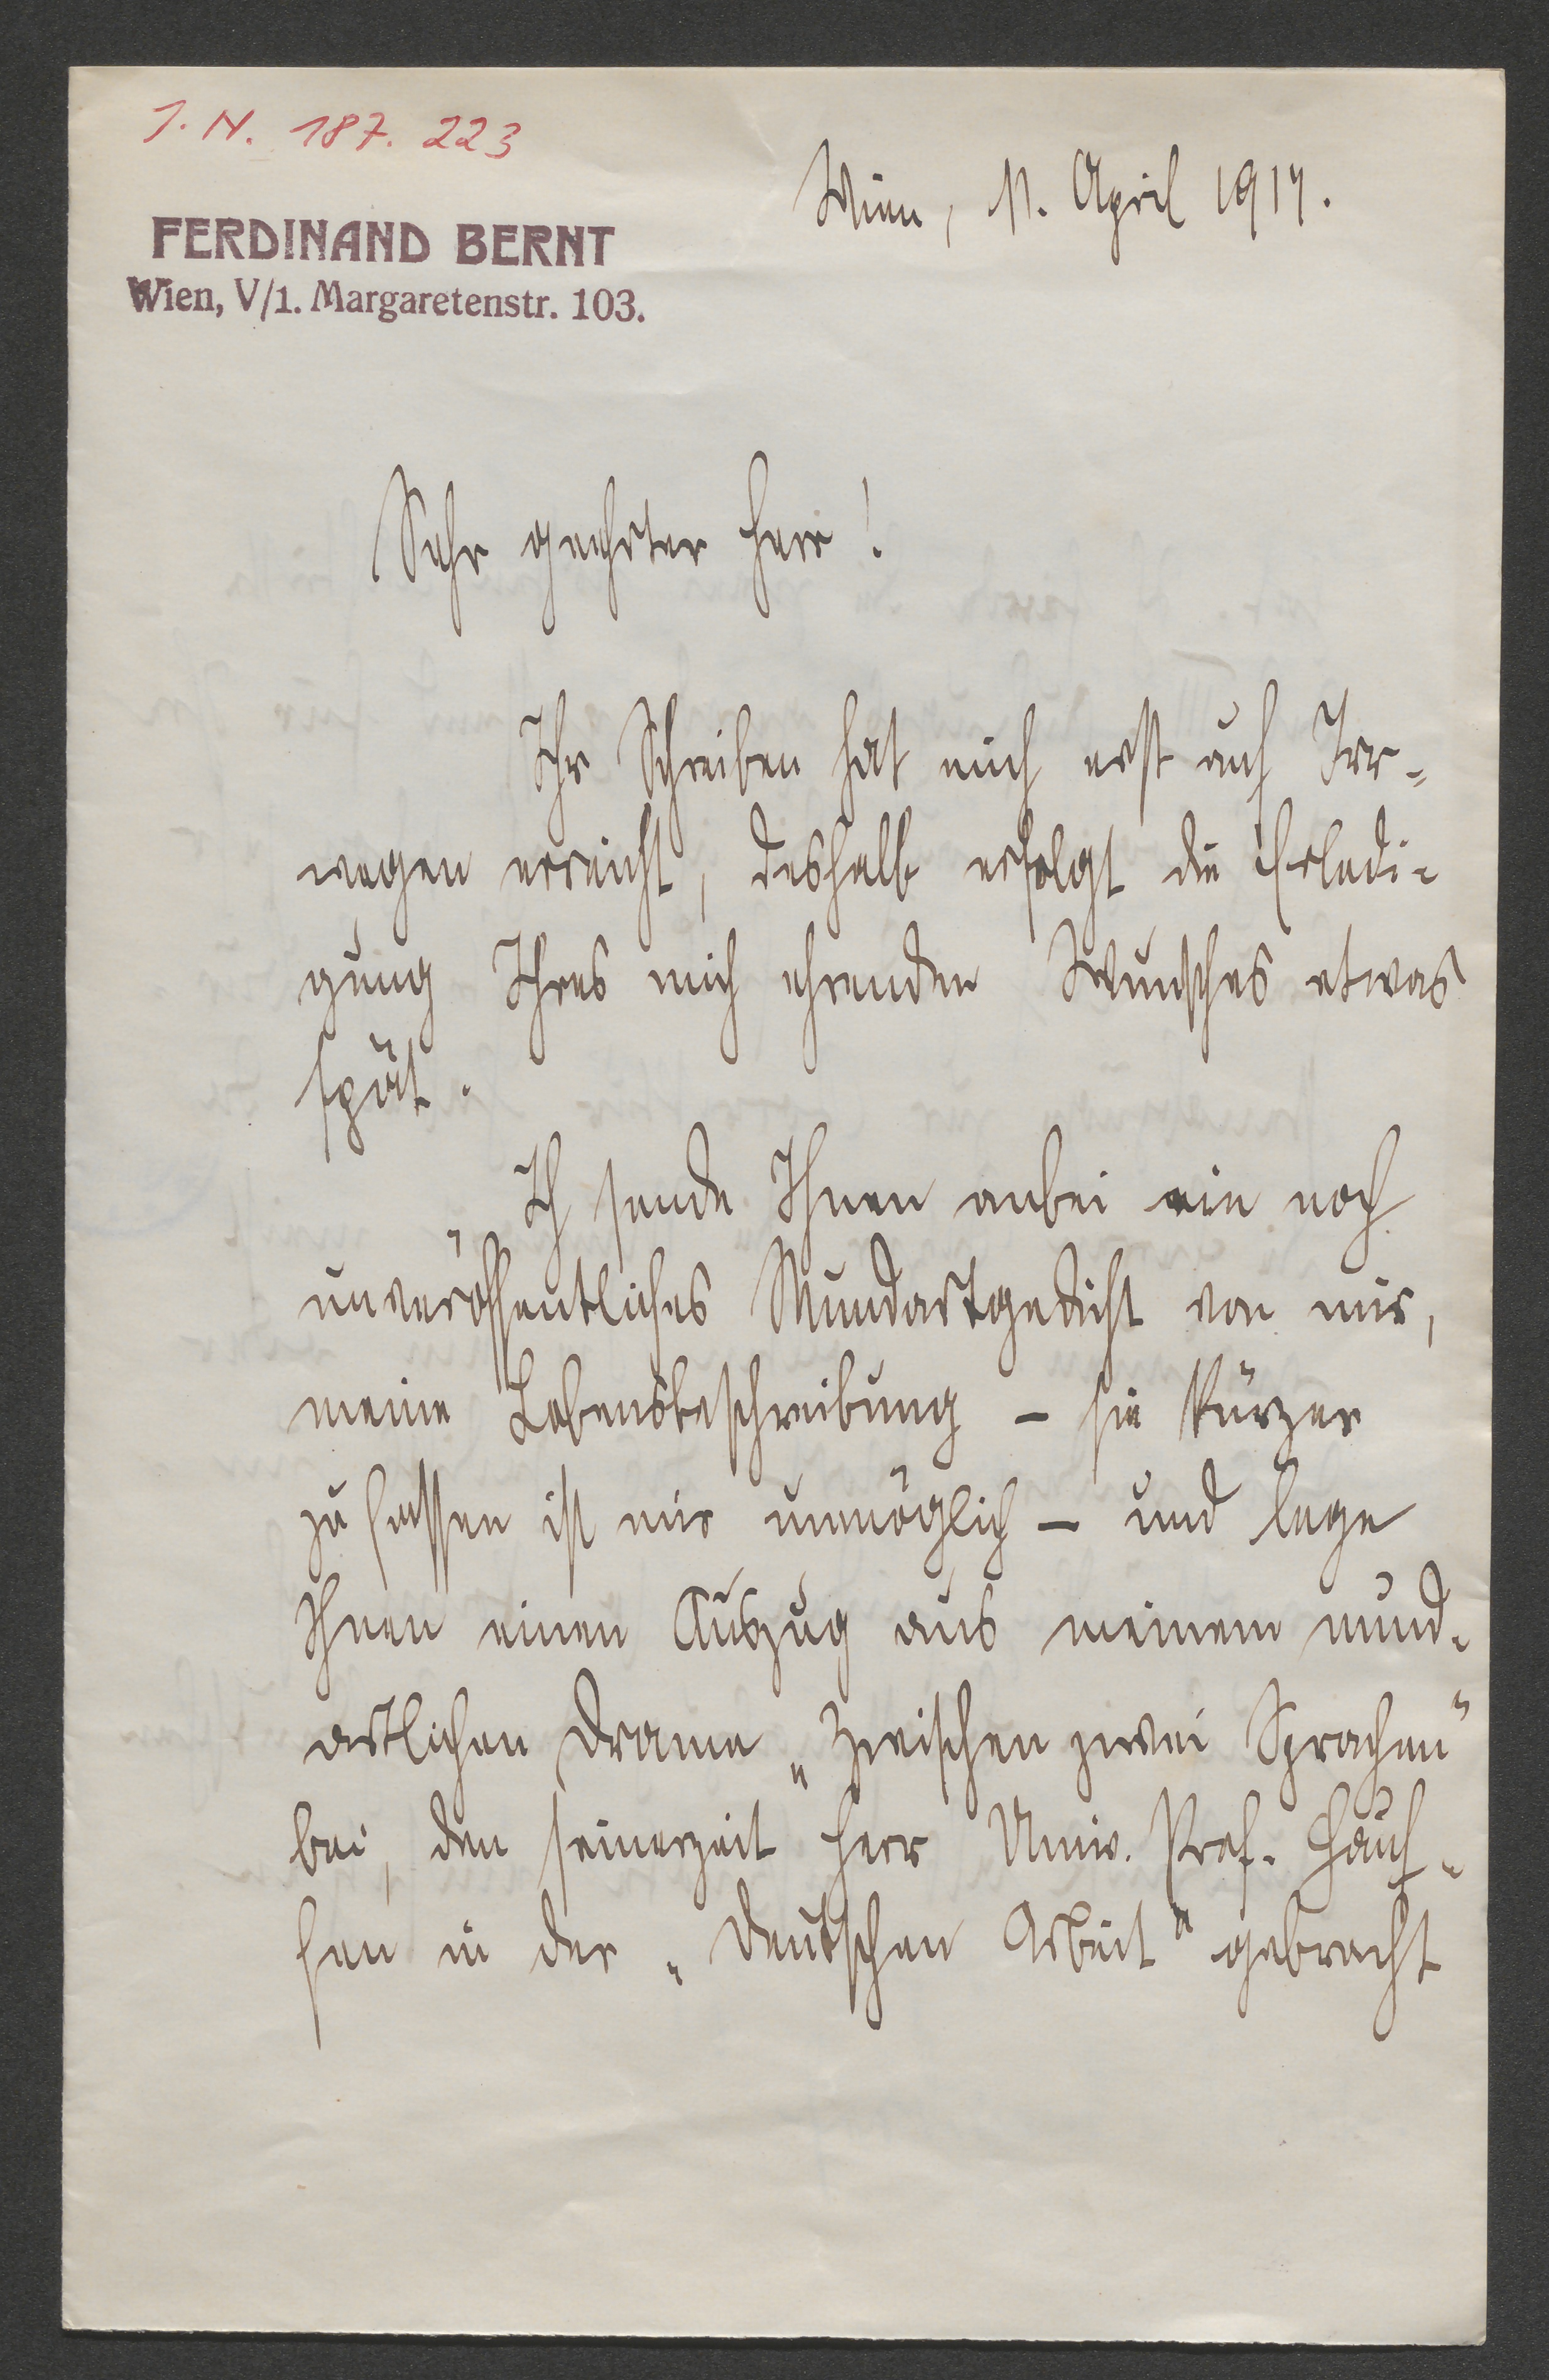 J. N. 187. 223
Wien, 11. April 1917.
FERDINAND BERNT
Wien, V/1. Margaretenstr. 103.
Sehr geehrter Herr!
Ihr Schreiben hat mich erst auf Irr-
wegen erreicht, deshalb erfolgt die Erledi-
gung Ihres mich ehrenden Wunsches etwas
spät.
Ich sende Ihnen anbei ein noch
unveröffentliches Mundartgedicht von mir,
meine Lebensbeschreibung – sie kürzer
zu fassen ist mir unmöglich – und lege
Ihnen einen Auszug aus meinem mund-
artlichen Drama „Zwischen zwei Sprachen"
bei, den seinerzeit Herr Univ. Prof. Hauf-
fen in der „Deutschen Arbeit" gebracht